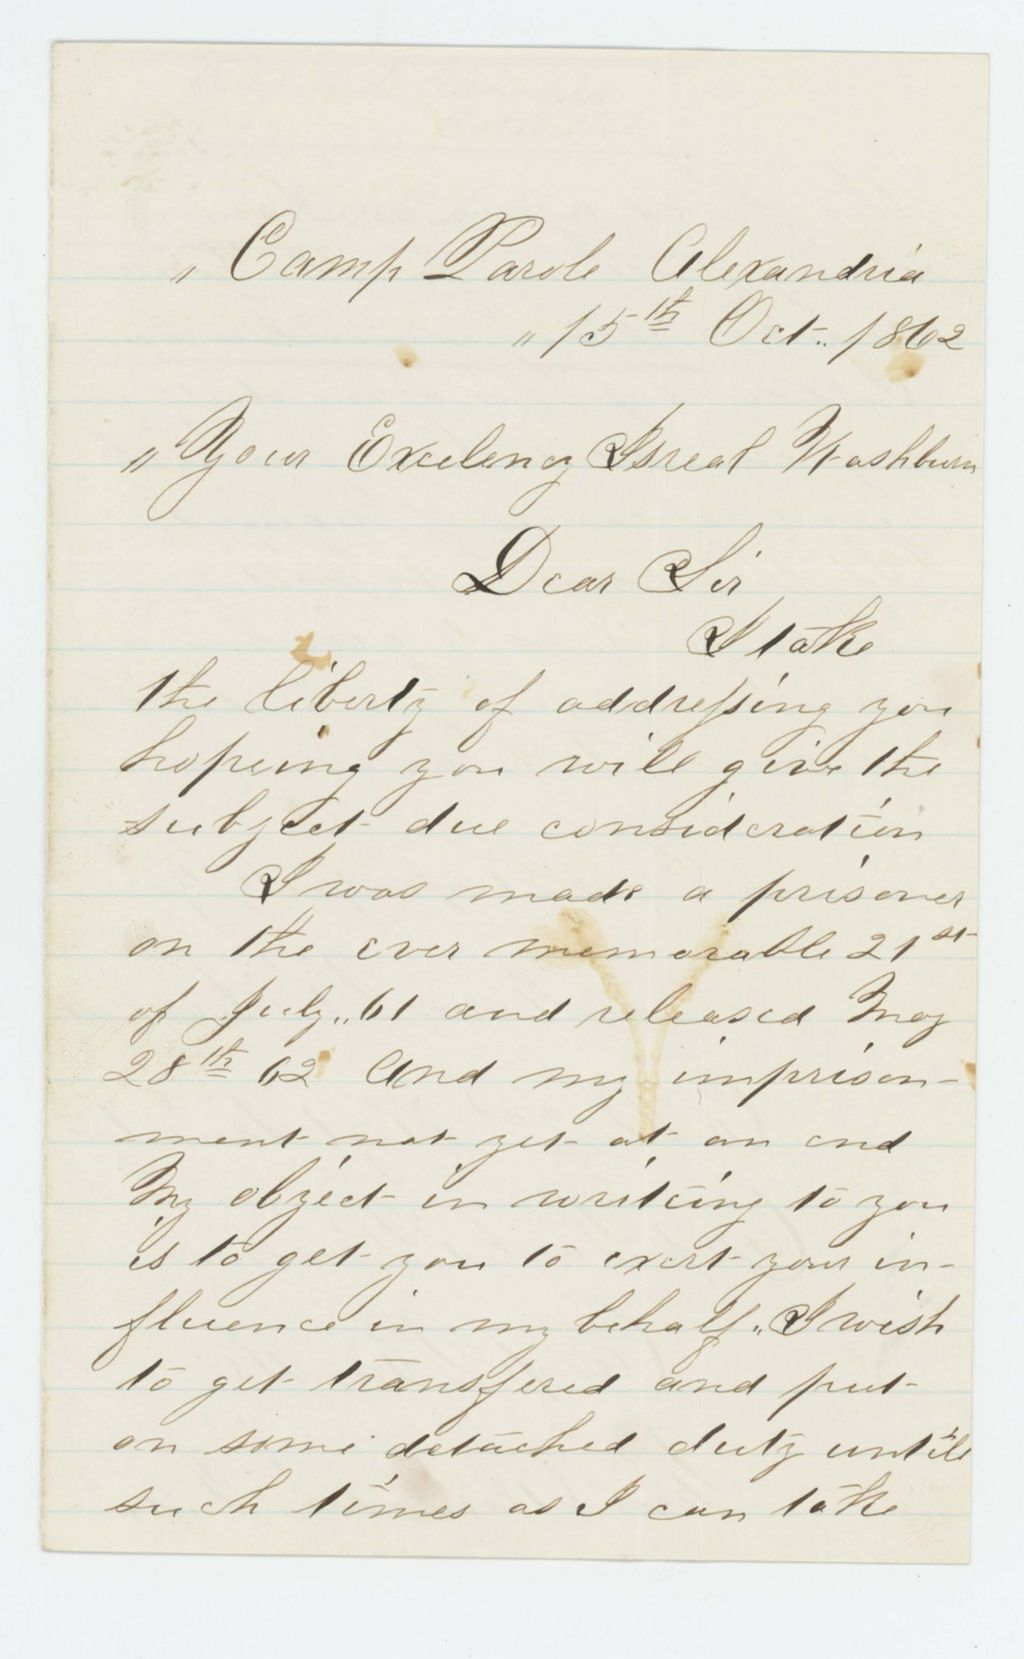 „ Camp Parole Alexandria
„ 15th Oct.. 1862
„ Your Exelency Isreal Washburn
Dear Sir
I take
the liberty of addressing you
hopeing you will give the
subject due consideration
I was made a prisoner
on the ever memorable 21st
of July.. 61 and released May
28th 62 And my imprison-
ment not yet at an end
My object in writeing to you
is to get you to exert your in-
fluence in my behalf.. I wish
to get transfered and put
on some detached duty untill
such times as I can take